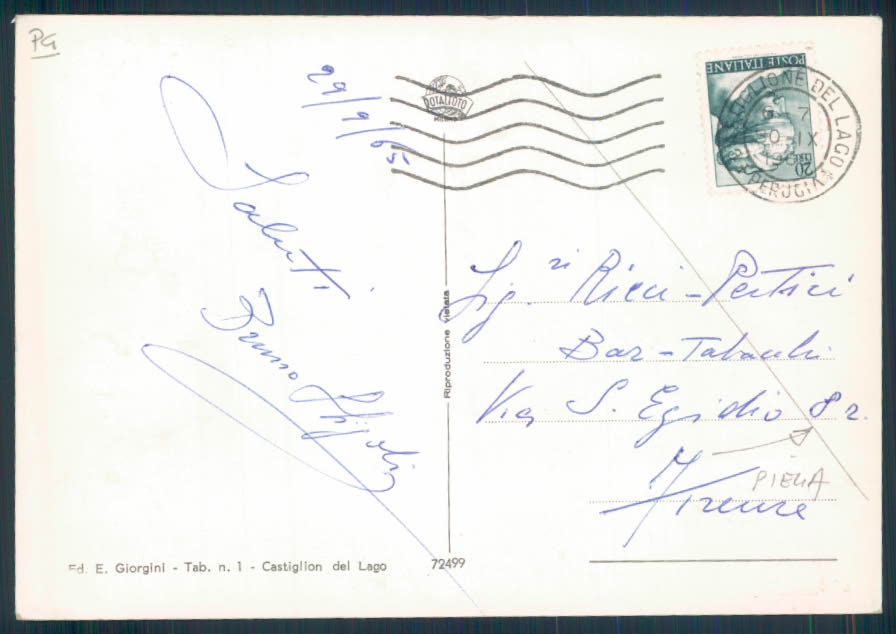 PG
29/9/65
Saluti
Bruno
ROTALFOTO
MILANO
POSTE ITALIANE
20 LIRE
CASTIGLIONE DEL LAGO
30 IX
PERUGIA
Sig.ri Ricci-Pertici
Bar-Tabacchi
Via S. Egidio 8 r.
Firenze
PIEGA
Riproduzione vietata
Ed. E. Giorgini - Tab. n. 1 - Castiglion del Lago
72499